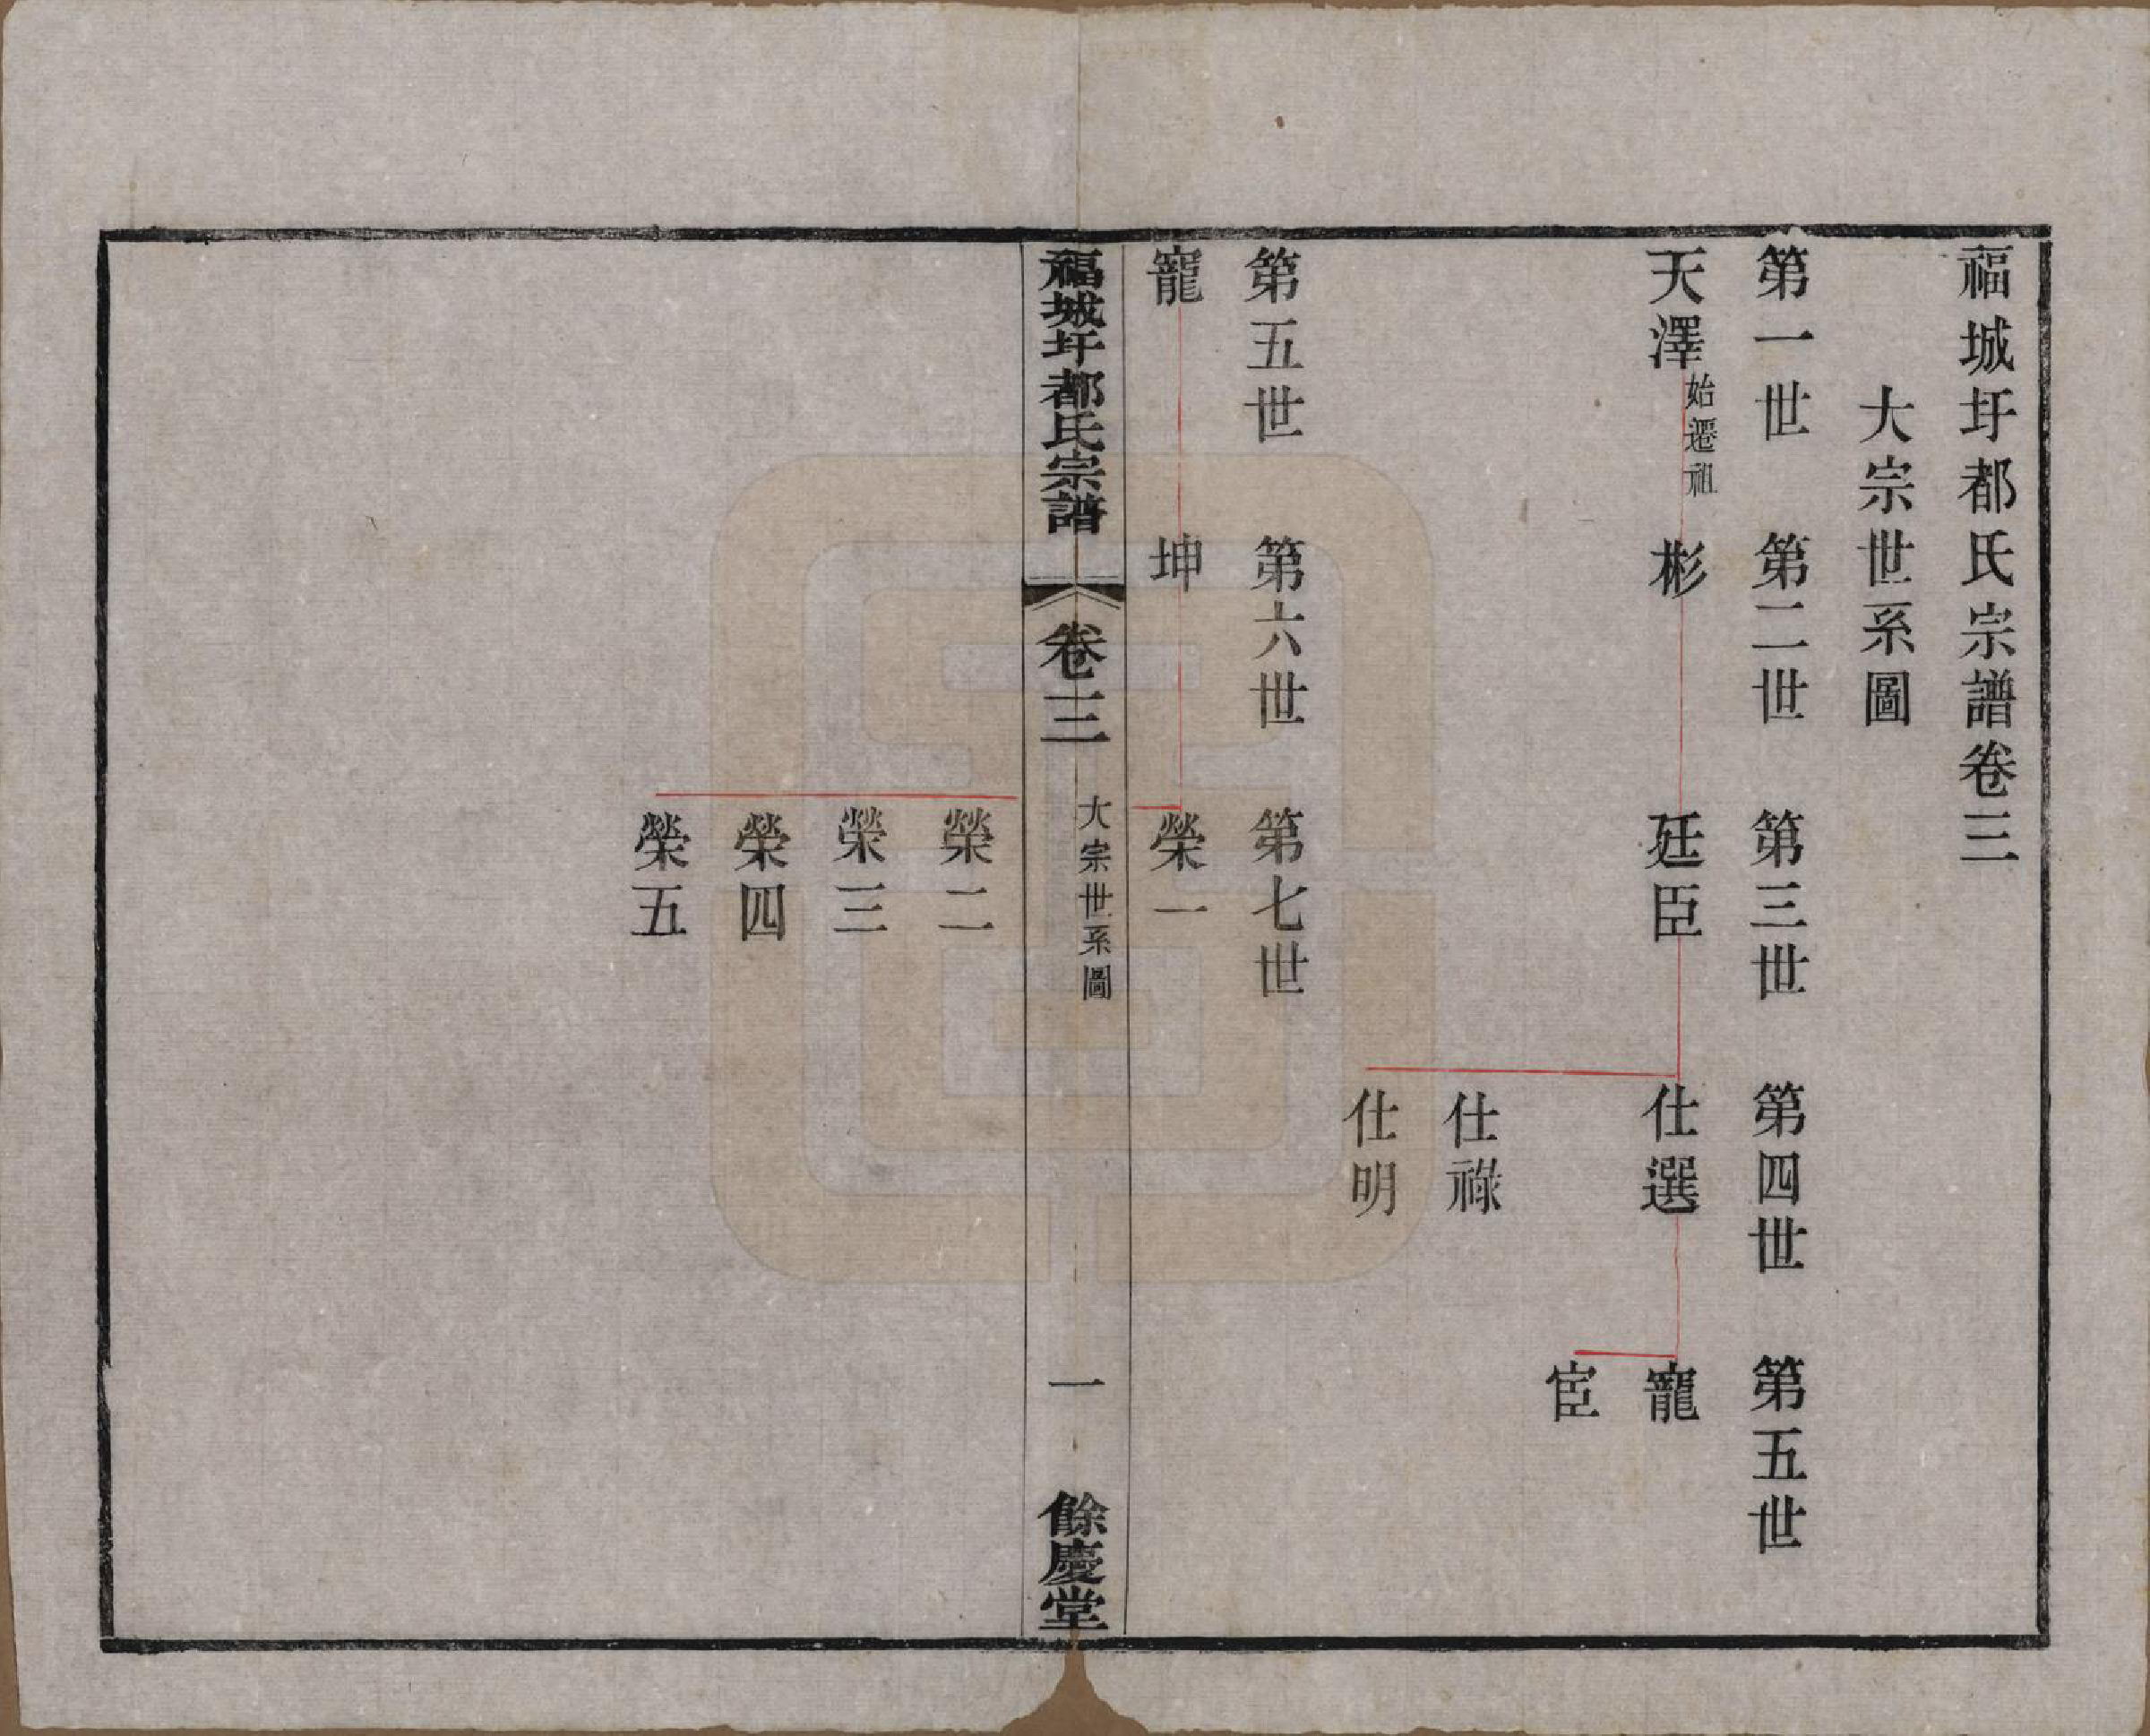 福城圩都氏宗譜卷三
大宗世系圖
第一世 第二世 第三世 第四世 第五世
天澤 始遷祖 彬 廷臣 仕選 寵
宦
仕祿
仕明
第五世 第六世 第七世
寵 坤 榮一
福城圩都氏宗譜 卷三 大宗世系圖 一 餘慶堂
榮二
榮三
榮四
榮五